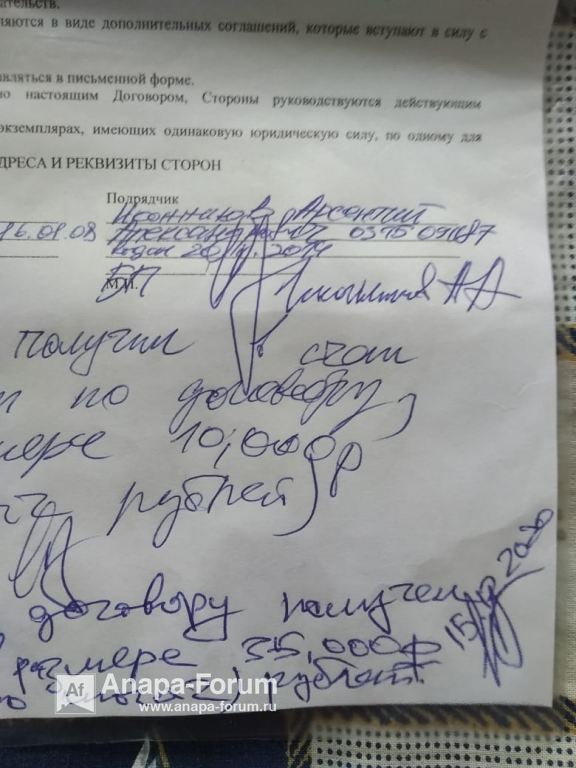 ательств.
ляются в виде дополнительных соглашений, которые вступают в силу с
авляться в письменной форме.
ию настоящим Договором, Стороны руководствуются действующим
экземплярах, имеющих одинаковую юридическую силу, по одному для
ДРЕСА И РЕКВИЗИТЫ СТОРОН
Подрядчик
Арсентий
Александрович
БП
М.П.
А А
получил
по договору,
мере 10,000р
рублей)
договору получен
размере 35,000р
рублей.
15 2020
Af Anapa-Forum
www.anapa-forum.ru